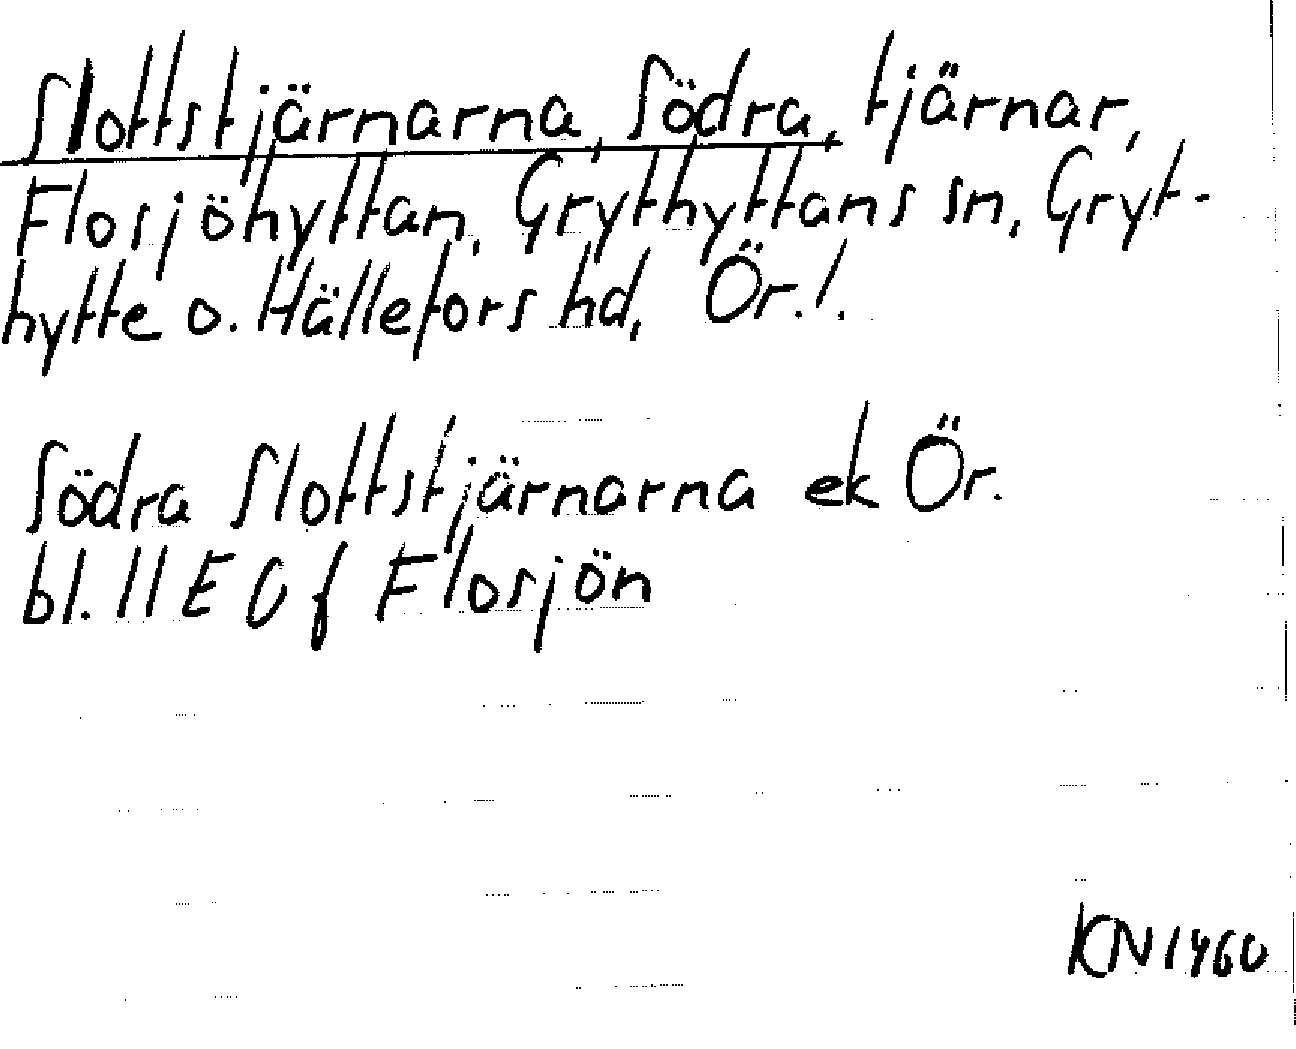 Slottstjärnarna, Södra, tjärnar,
Flosjöhyttan, Grythyttans sn, Gryt-
hytte o. Hällefors hd, Ör.l.
Södra Slottstjärnarna ek Ör.
bl. 11 E 0 f Flosjön
KN 1960